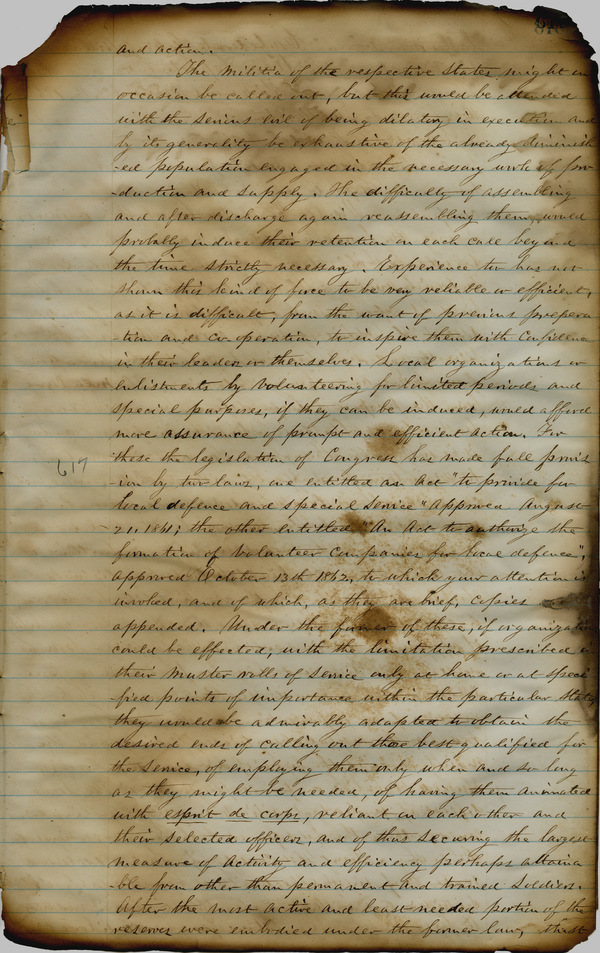 and action.
The Militia of the respective States might on
occasion be called out, but this would be attended
with the serious evil of being dilatory in execution and
by its generality be exhaustive of the already diminish
-ed population engaged in the necessary work of pro-
-duction and supply. The difficulty of assembling
and after discharge again reassembling them, would
probably induce their retention on each call beyond
the time strictly necessary. Experience too has not
shown this kind of force to be very reliable or efficient,
as it is difficult, from the want of previous prepera
-tion and co-operation, to inspire them with confidence
in their leaders or themselves. Local organizations or
enlistments by volunteering for limited periods and
special purposes, if they can be induced, would afford
more assurance of prompt and efficient action. For
these the legislation of Congress has made full provis-
617
ion by two laws, one entitled an Act "to provide for
local defence and special service" approved August
21, 1861; the other entitled "An Act to authorize the
formation of volunteer companies for local defence",
approved October 13th 1862, to which your attention is
invoked, and of which, as they are brief, copies
appended. Under the former of these, if organization
could be effected, with the limitation prescribed in
their muster rolls of service only at home or at speci
-fied points of importance within the particular State,
they would be admirably adapted to obtain the
desired ends of calling out those best qualified for
the service, of employing them only when and so long
as they might be needed, of having them animated
with esprit de corps, reliant on each other and
their selected officers, and of thus securing the largest
measure of activity and efficiency perhaps attaina
-ble from other than permanent and trained soldiers.
After the most active and least needed portion of the
reserves were embodied under the former law, that